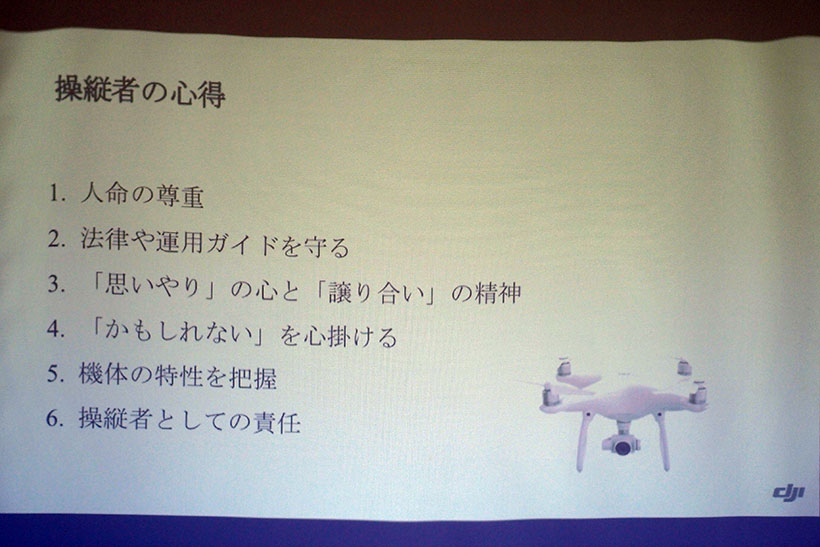 操縦者の心得
1. 人命の尊重
2. 法律や運用ガイドを守る
3. 「思いやり」の心と「譲り合い」の精神
4. 「かもしれない」を心掛ける
5. 機体の特性を把握
6. 操縦者としての責任
dji